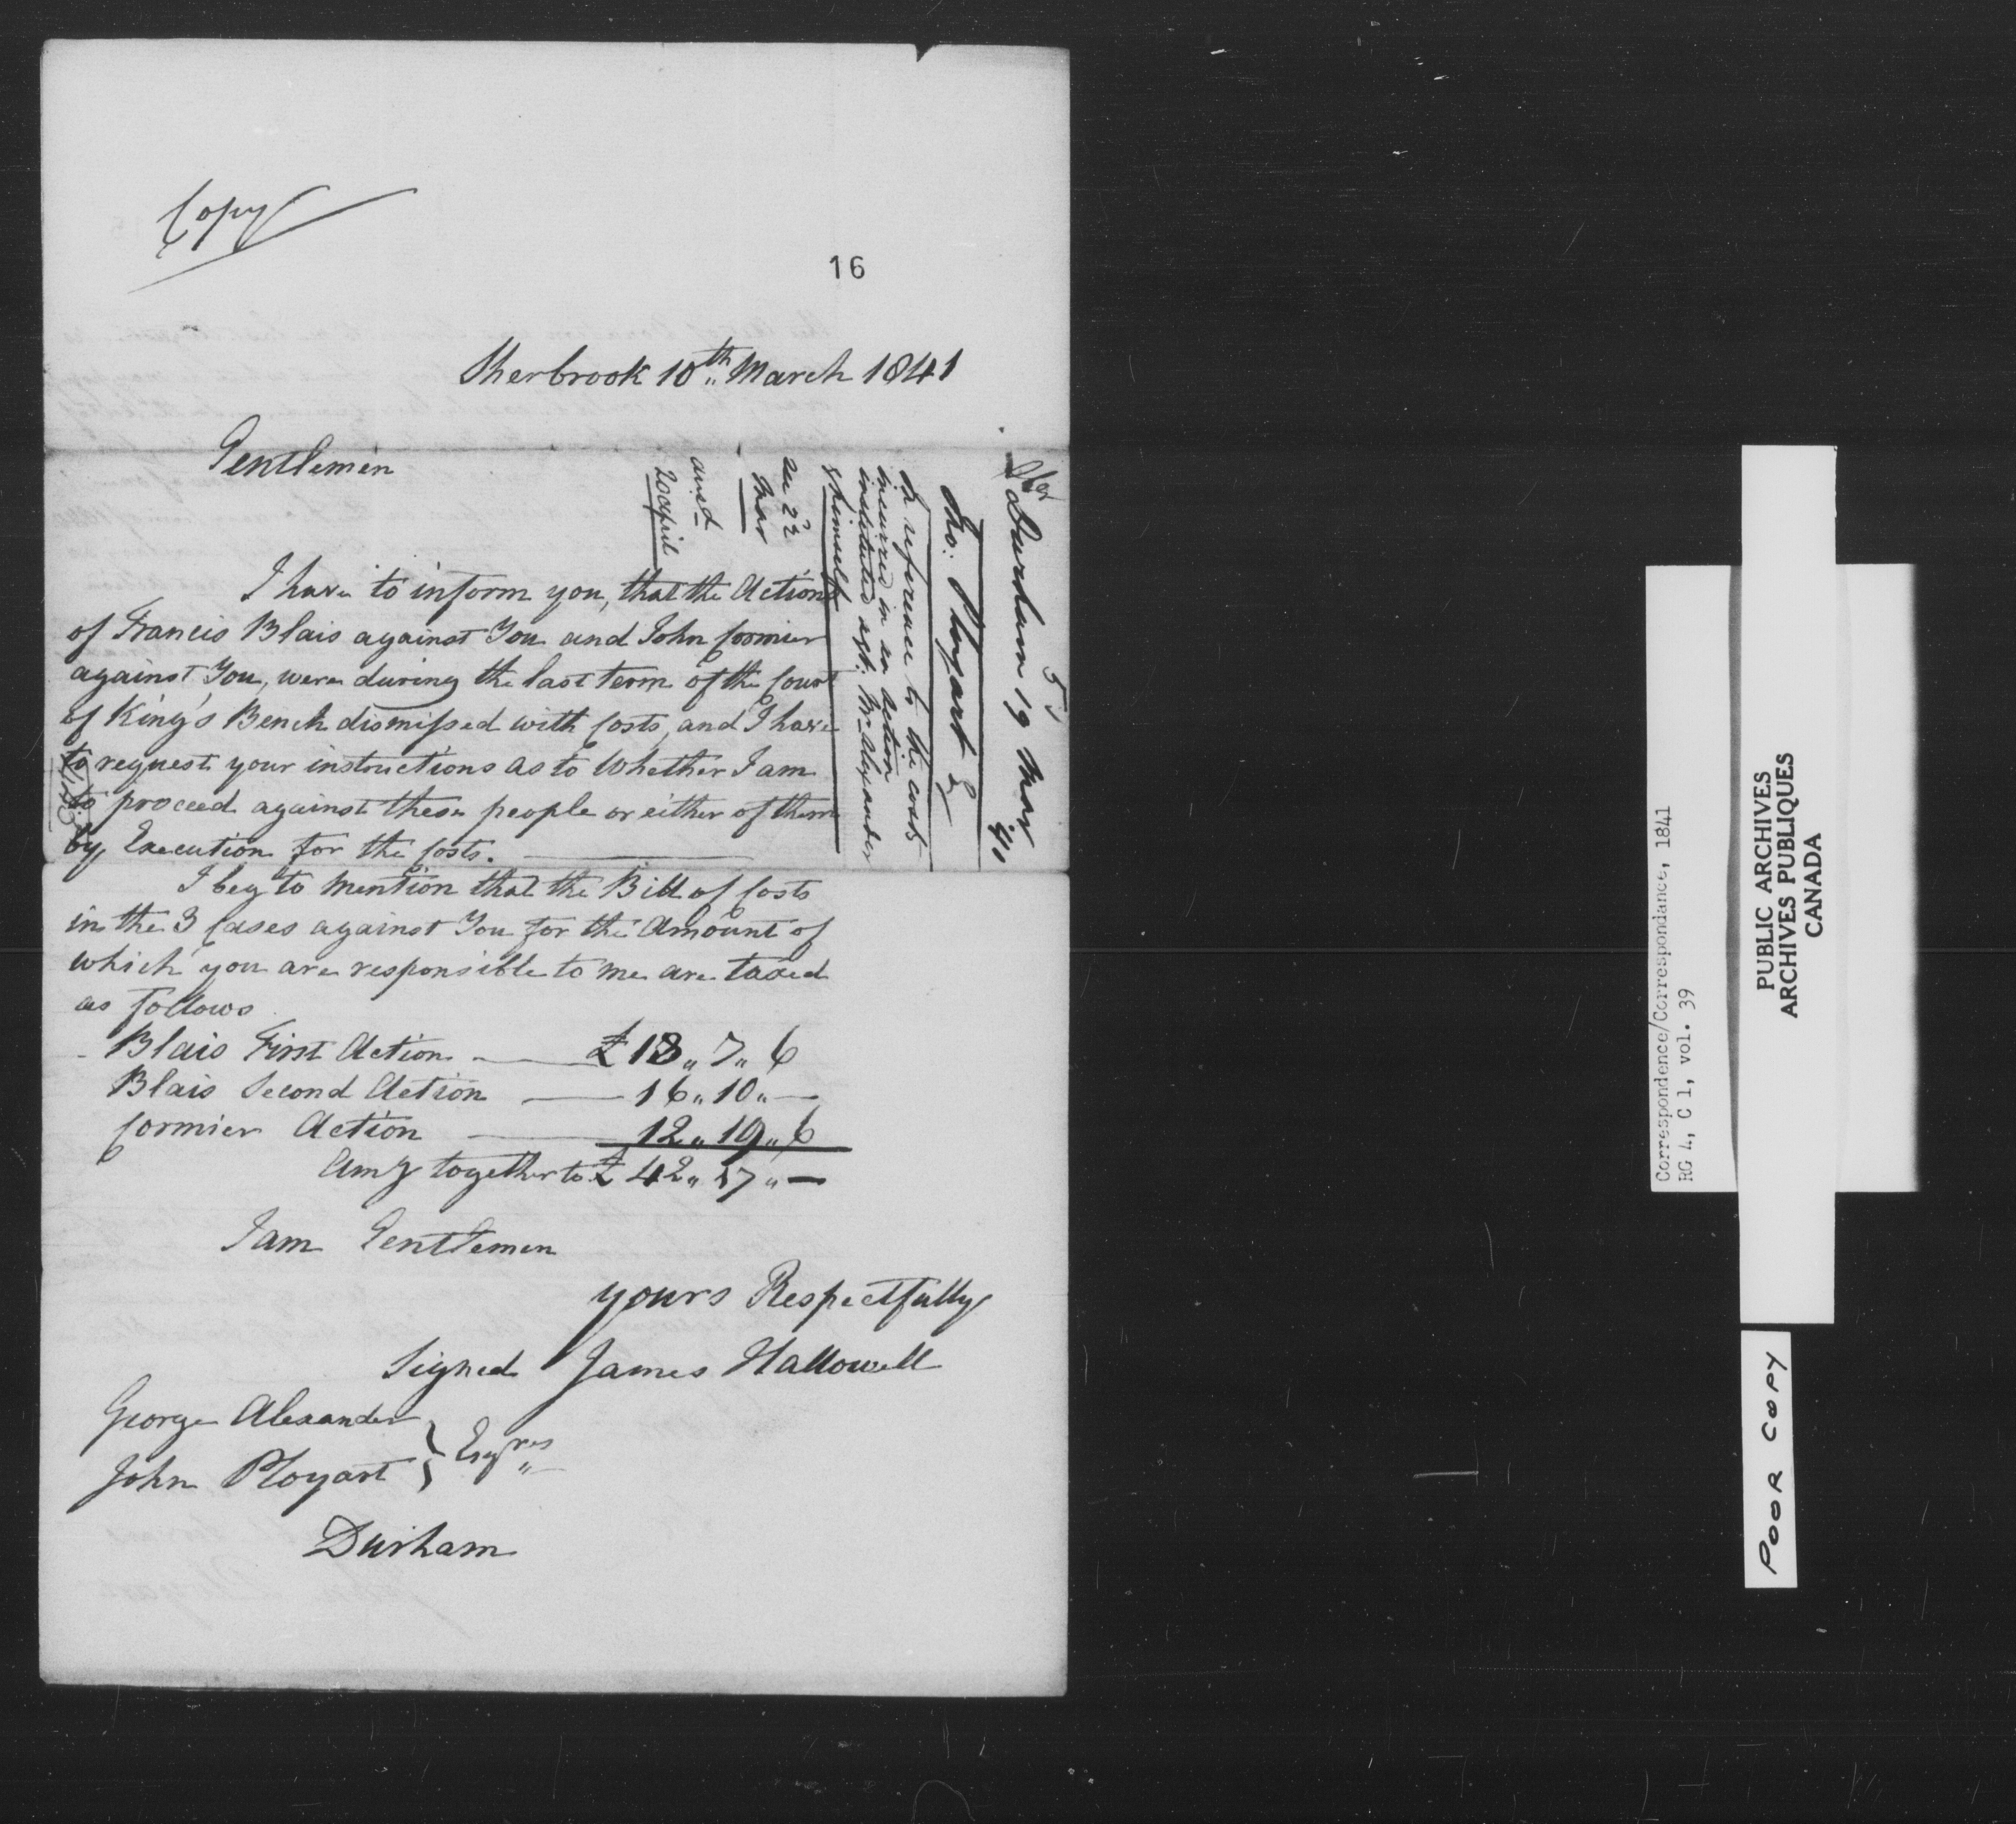 Copy
16
Sherbrook 10th March 1841
Gentlemen
I have to inform you, that the Actions
of Francis Blais against You and John Cormier
against You, were during the last term of the Court
of King's Bench dismissed with Costs, and I have
to request your instructions as to Whether I am
to proceed against these people or either of them
by Execution for the Costs.
I beg to mention that the Bill of Costs
in the 3 Cases against You for the Amount of
which you are responsible to me are taxed
as follows
Blais First Action £ 13 " 7 " 6
Blais Second Action 16 " 10 " —
Cormier Action 12 " 19 " 6
Amg together to £ 42 " 17 " —
I am Gentlemen
yours Respectfully
Signed James Hallowell
George Alexander
John Ployart } Esqres
Durham
Durham 19 Mar 41
Jno: Ployart Esq
In reference to the costs
incurred in an action
instituted agt. Mr Alexander
& himself
22
Mar
ansd
20 april
Correspondence/Correspondance, 1841
RG 4, C 1, vol. 39
PUBLIC ARCHIVES
ARCHIVES PUBLIQUES
CANADA
POOR COPY